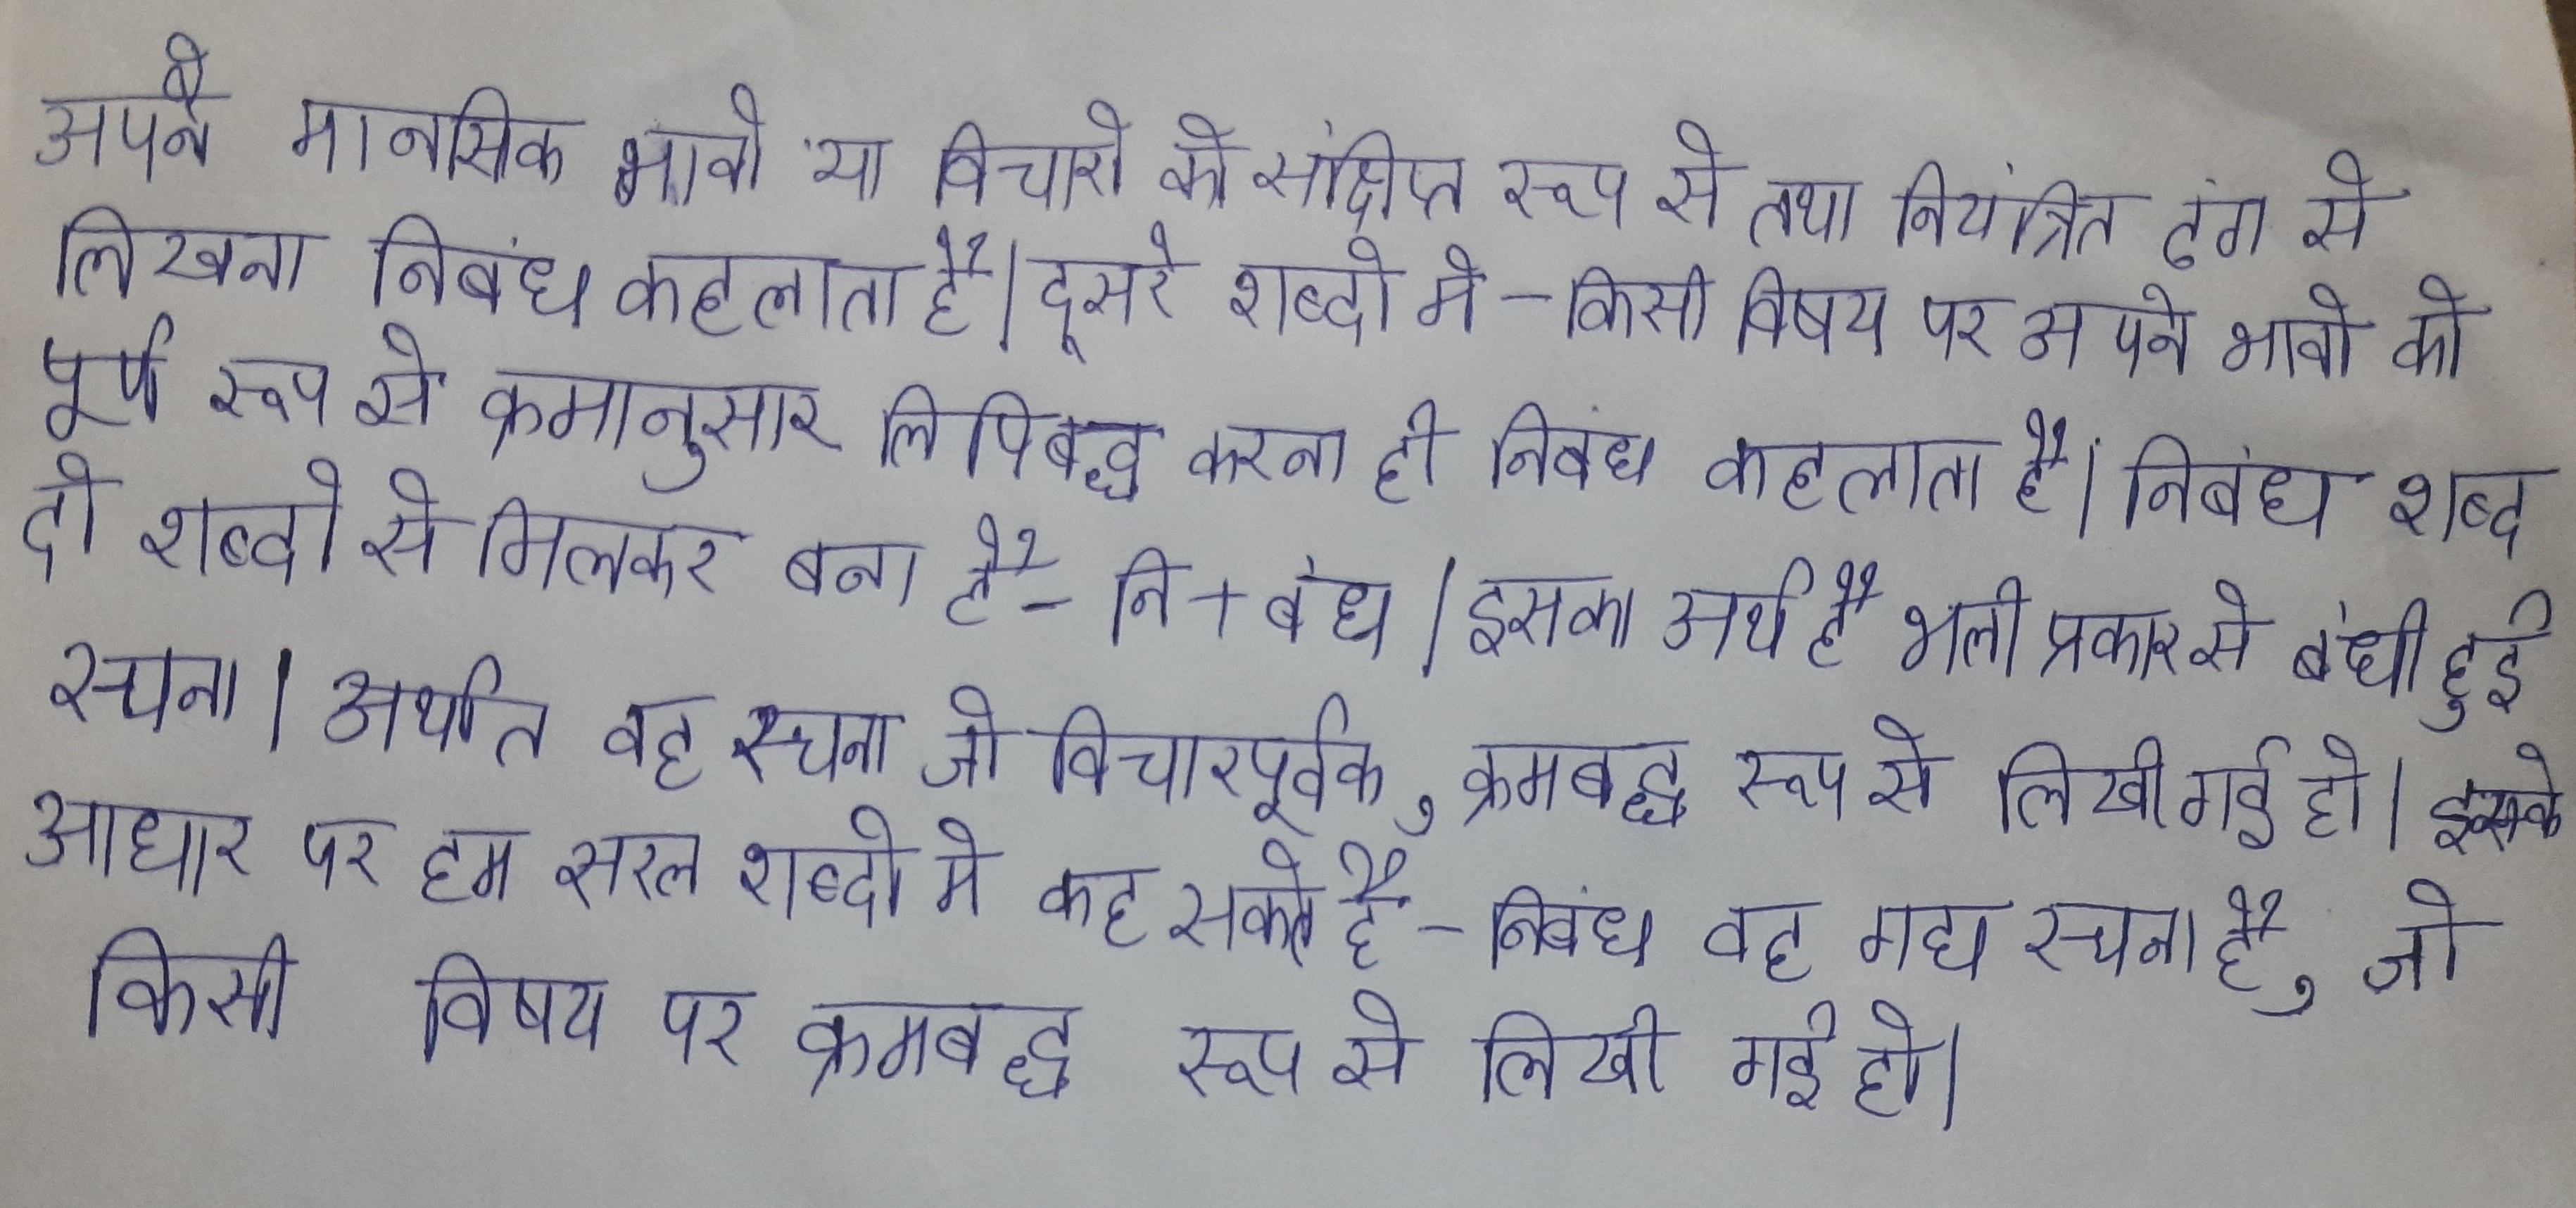 अपने मानसिक भावो या विचारो को संक्षिप्त रूप से तथा नियंत्रित ढंग से
लिखना निबंध कहलाता है। दूसरे शब्दो मे – किसी विषय पर अपने भावो को
पूर्ण रूप से क्रमानुसार लिपिबद्ध करना ही निबंध कहलाता है। निबंध शब्द
दो शब्दो से मिलकर बना है – नि + बंध । इसका अर्थ है भली प्रकार से बंधी हुई
रचना। अर्थात वह रचना जो विचारपूर्वक, क्रमबद्ध रूप से लिखी गई हो। इसके
आधार पर हम सरल शब्दो मे कह सकते है – निबंध वह गद्य रचना है, जो
किसी विषय पर क्रमबद्ध रूप से लिखी गई हो।